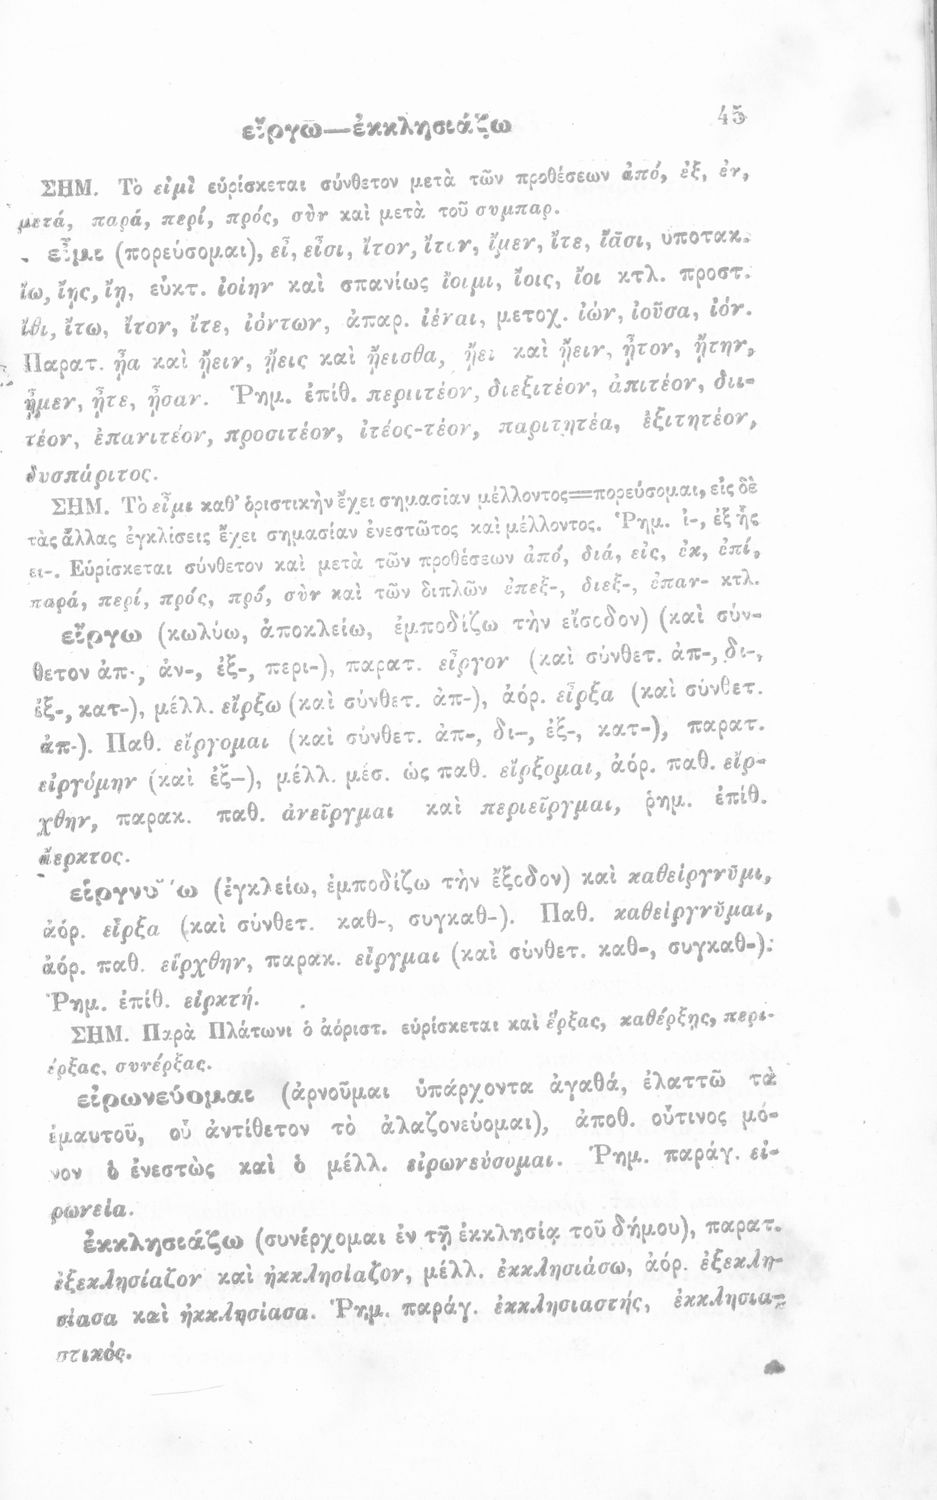 εἴργω—ἐκκλησιάζω
45
ΣΗΜ. Τὸ εἰμὶ εὑρίσκεται σύνθετον μετὰ τῶν προθέσεων ἀπό, ἐξ, ἐν,
μετά, παρά, περί, πρός, σὺν καὶ μετὰ τοῦ συμπαρ.
εἶμι (πορεύσομαι), εἶ, εἶσι, ἴτον, ἴτον, ἴμεν, ἴτε, ἴᾱσι, ὑποτακ.
ἴω, ἴῃς, ἴῃ, εὐκτ. ἰοίην καὶ σπανίως ἴοιμι, ἴοις, ἴοι κτλ. προστ.
ἴθι, ἴτω, ἴτον, ἴτε, ἰόντων, ἀπαρ. ἰέναι, μετοχ. ἰών, ἰοῦσα, ἰόν.
Παρατ. ᾖα καὶ ᾔειν, ᾔεις καὶ ᾔεισθα, ᾔει καὶ ᾔειν, ᾖτον, ᾔτην,
ᾖμεν, ᾖτε, ᾖσαν. Ῥημ. ἐπίθ. περιιτέον, διεξιτέον, ἀπιτέον, διι-
τέον, ἐπανιτέον, προσιτέον, ἰτέος-τέον, παριτητέα, ἐξιτητέον,
δυσπάριτος.
ΣΗΜ. Τὸ εἶμι καθ' ὁριστικὴν ἔχει σημασίαν μέλλοντος=πορεύσομαι, εἰς δὲ
τὰς ἄλλας ἐγκλίσεις ἔχει σημασίαν ἐνεστῶτος καὶ μέλλοντος. Ῥημ. ἰ-, ἐξ ἧς
ει-. Εὑρίσκεται σύνθετον καὶ μετὰ τῶν προθέσεων ἀπό, διά, εἰς, ἐκ, ἐπί,
παρά, περί, πρός, πρό, σὺν καὶ τῶν διπλῶν ἐπεξ-, διεξ-, ἐπαν- κτλ.
εἴργω (κωλύω, ἀποκλείω, ἐμποδίζω τὴν εἴσοδον) (καὶ σύν-
θετον ἀπ-, ἀν-, ἐξ-, περι-), παρατ. εἶργον (καὶ σύνθετ. ἀπ-, δι-,
ἐξ-, κατ-), μέλλ. εἴρξω (καὶ σύνθετ. ἀπ-), ἀόρ. εἶρξα (καὶ σύνθετ.
ἀπ-). Παθ. εἴργομαι (καὶ σύνθετ. ἀπ-, δι-, ἐξ-, κατ-), παρατ.
εἰργόμην (καὶ ἐξ-), μέλλ. μέσ. ὡς παθ. εἴρξομαι, ἀόρ. παθ. εἴρ-
χθην, παρακ. παθ. ἀνεῖργμαι καὶ περιεῖργμαι, ῥημ. ἐπίθ.
ἄερκτος.
(ἐγκλείω, ἐμποδίζω τὴν ἔξοδον) καὶ καθείργνῡμι,
ἀόρ. εἷρξα (καὶ σύνθετ. καθ-, συγκαθ-). Παθ. καθείργνῠμαι,
ἀόρ. παθ. εἵρχθην, παρακ. εἷργμαι (καὶ σύνθετ. καθ-, συγκαθ-).
Ῥημ. ἐπίθ. εἱρκτή.
ΣΗΜ. Παρὰ Πλάτωνι ὁ ἀόριστ. εὑρίσκεται καὶ ἕρξας, καθέρξῃς, περι-
έρξας, συνέρξας.
εἰρωνεύομαι (ἀρνοῦμαι ὑπάρχοντα ἀγαθά, ἐλαττῶ τὰ
ἐμαυτοῦ, οὗ ἀντίθετον τὸ ἀλαζονεύομαι), ἀποθ. οὗτινος μό-
νον ὁ ἐνεστὼς καὶ ὁ μέλλ. εἰρωνεύσομαι. Ῥημ. παράγ. εἰ-
ρωνεία.
ἐκκλησιάζω (συνέρχομαι ἐν τῇ ἐκκλησίᾳ τοῦ δήμου), παρατ.
ἐξεκλησίαζον καὶ ἠκκλησίαζον, μέλλ. ἐκκλησιάσω, ἀόρ. ἐξεκλη-
σίασα καὶ ἠκκλησίασα. Ῥημ. παράγ. ἐκκλησιαστής, ἐκκλησια-
στικός.